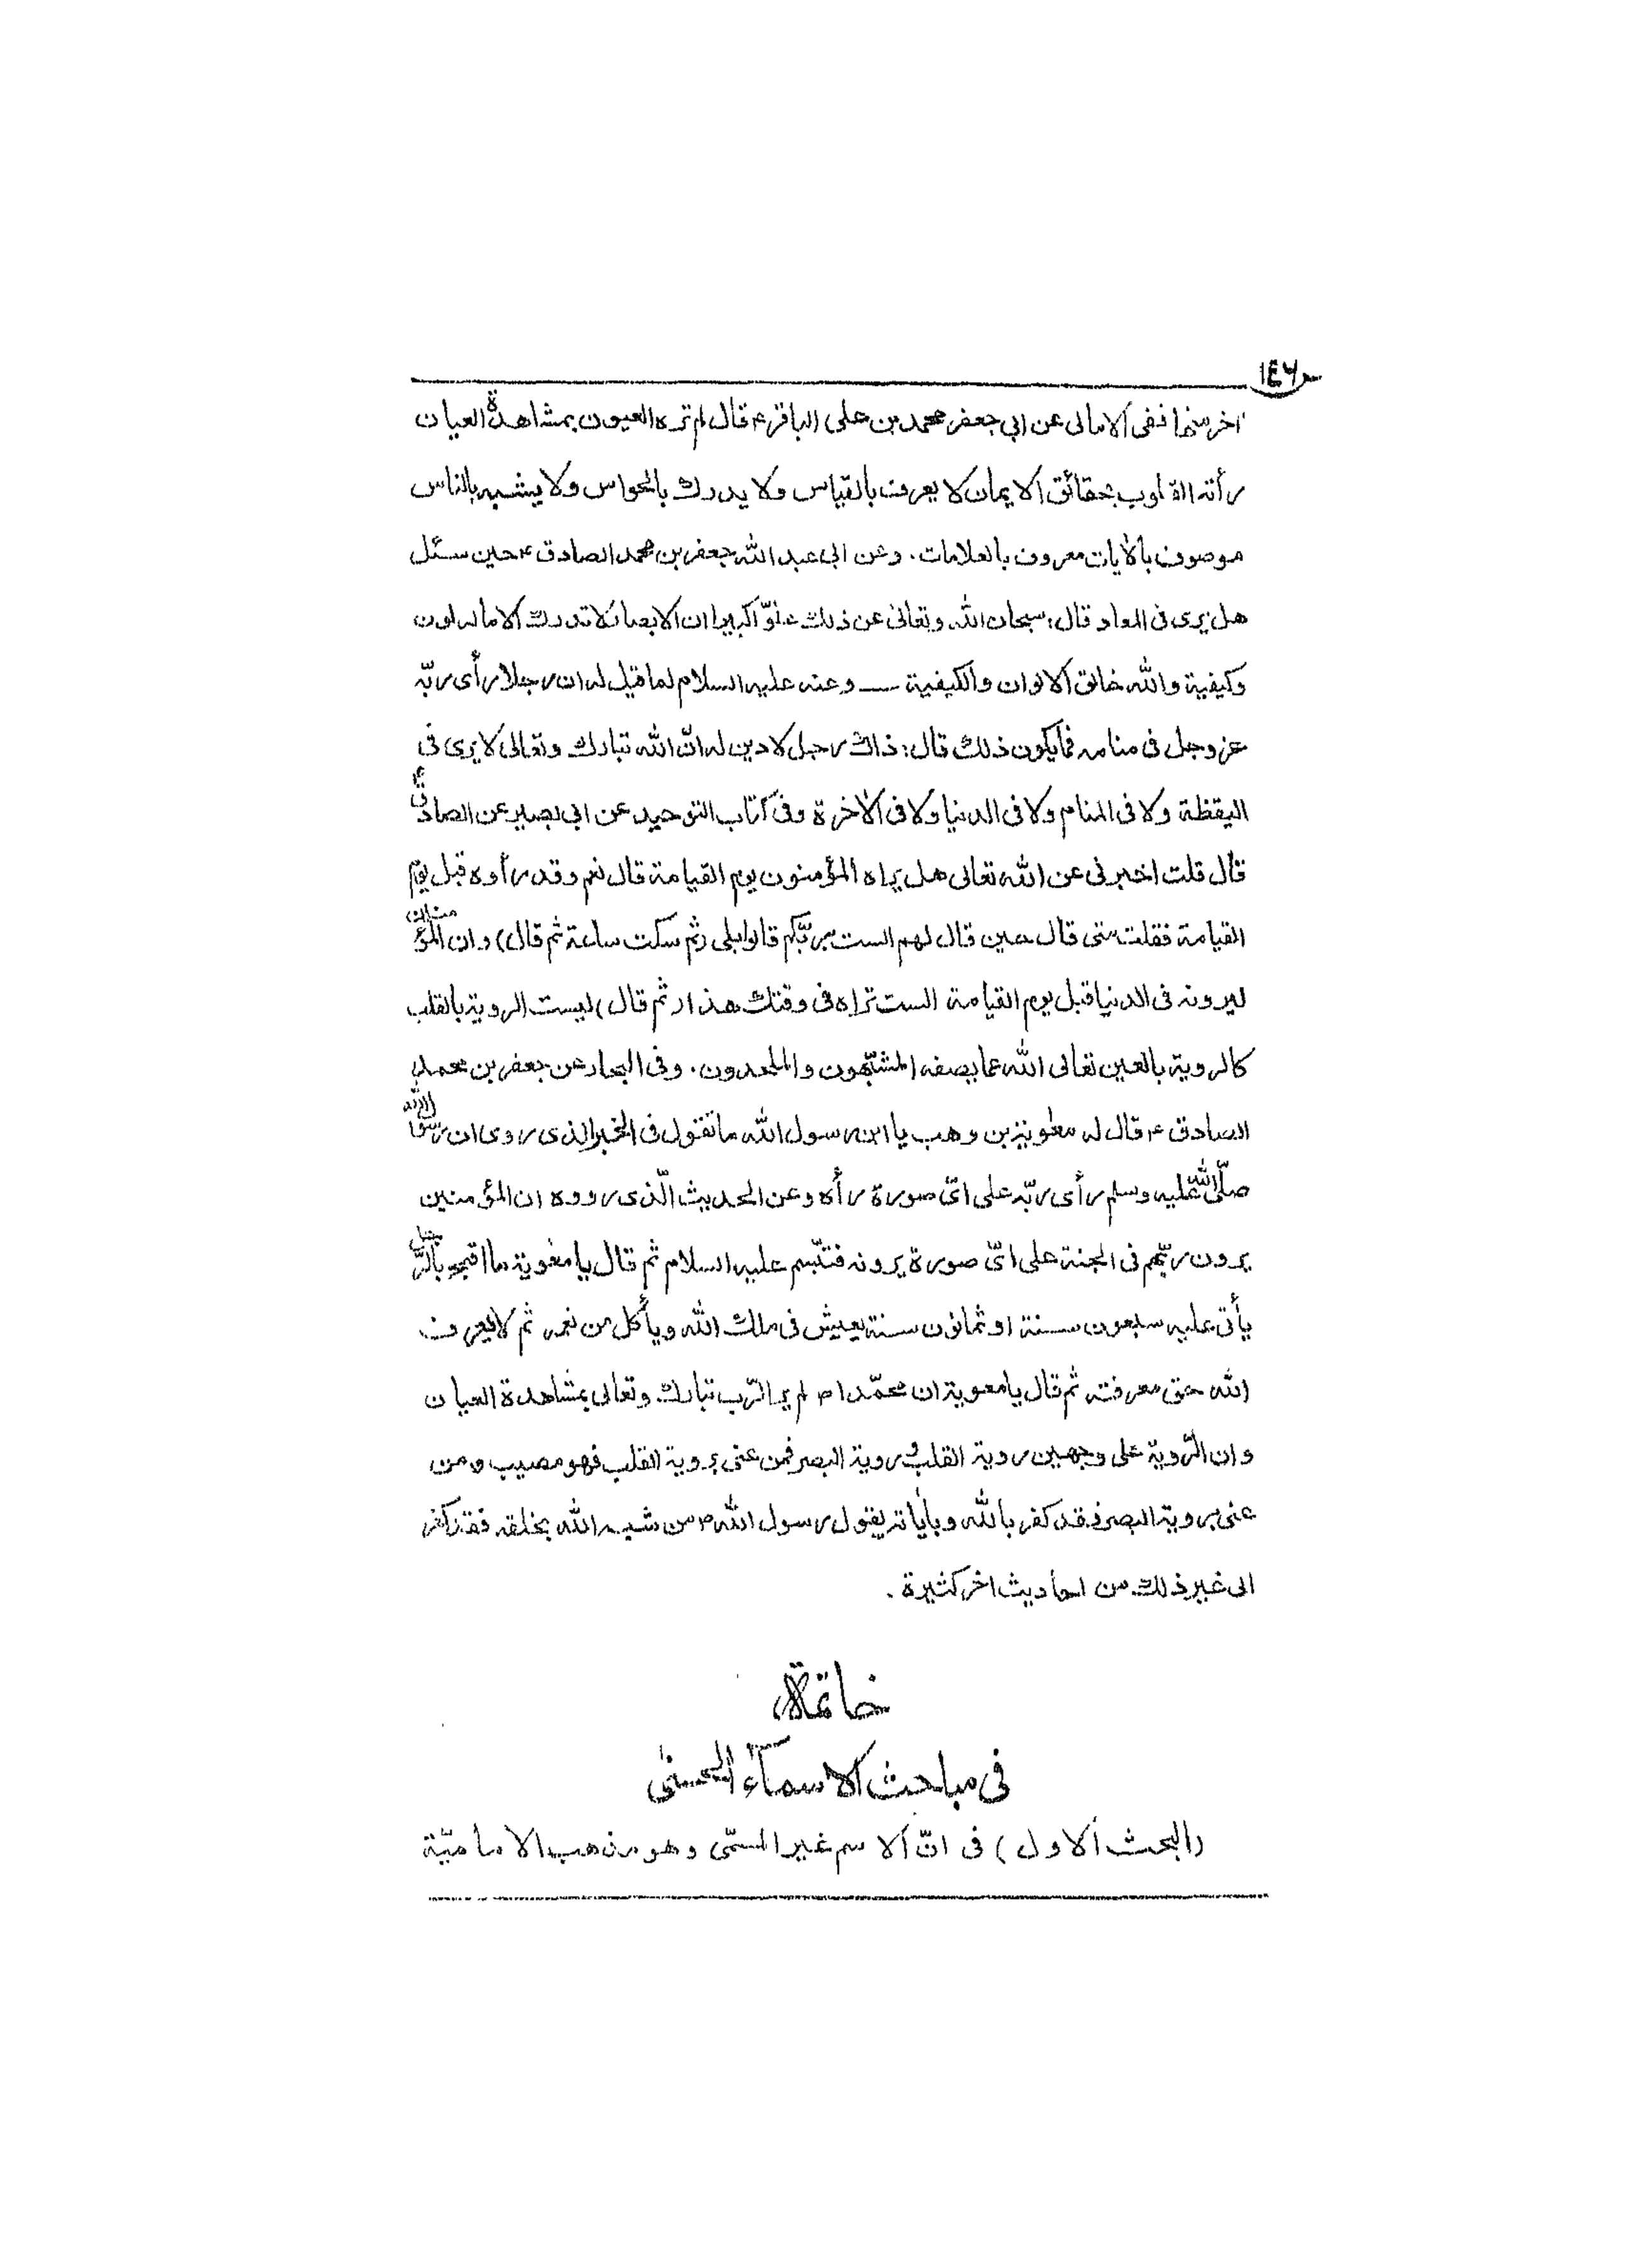 ١٤٦
اخر منها ففى الامالى عن ابي جعفر محمد بن على الباقر ع قال لم تره العيون بمشاهدة العيان
رأته القلوب بحقائق الايمان لا يعرف بالقياس ولا يدرك بالحواس ولا يشبه بالناس
موصوف بالأيات معروف بالعلامات . وعن ابى عبد الله جعفر بن محمد الصادق ع حين سئل
هل يرى فى المعاد قال: سبحان الله وتعالى عن ذلك علوّا كبيرا ان الابصار لا تدرك الا ما له لون
وكيفية والله خالق الالوان والكيفية — وعنه عليه السلام لما قيل له ان رجلا رأى ربّه
عز وجل فى منامه فما يكون ذلك قال: ذاك رجل لا دين له انّ الله تبارك وتعالى لا يرى فى
اليقظة ولا فى المنام ولا فى الدنيا ولا فى الأخرة وفى كتاب التوحيد عن ابى بصير عن الصادق ع
قال قلت اخبرنى عن الله تعالى هل يراه المؤمنون يوم القيامة قال نعم وقد رأوه قبل يوم
القيامة فقلت متى قال حين قال لهم الست بربّكم قالوا بلى (ثم سكت ساعة ثم قال) وان المؤمنين
ليرونه فى الدنيا قبل يوم القيامة الست تراه فى وقتك هذا (ثم قال) ليست الروية بالقلب
كالروية بالعين تعالى الله عما يصفه المشبّهون والملحدون . وفى البحار عن جعفر بن محمد
الصادق ع قال له معوية بن وهب يا ابن رسول الله ما تقول فى الخبر الذى روى ان رسول الله
صلّى الله عليه وسلم رأى ربّه على اىّ صورة رأه وعن الحديث الّذى رووه ان المؤمنين
يرون ربّهم فى الجنة على اىّ صورة يرونه فتبّسم عليه السلام ثم قال يا معوية ما اقبح بالرّجل
يأتى عليه سبعون سنة او ثمانون سنة يعيش فى ملك الله ويأكل من نعمه ثم لا يعرف
الله حق معرفته ثم قال يا معوية ان محمّدا ص لم ير الرّب تبارك وتعالى بمشاهدة العيان
وان الرّوية على وجهين روية القلب و روية البصر فمن عنى بروية القلب فهو مصيب ومن
عنى بروية البصر فقد كفر بالله وبأياته يقول رسول الله ص من شبه الله بخلقه فقد كفر
الى غير ذلك من احاديث اخر كثيرة .
خاتمة
فى مباحث الاسماء الحسنى
(البحث الاول) فى انّ الاسم غير المسمّى وهو مذهب الاماميّة